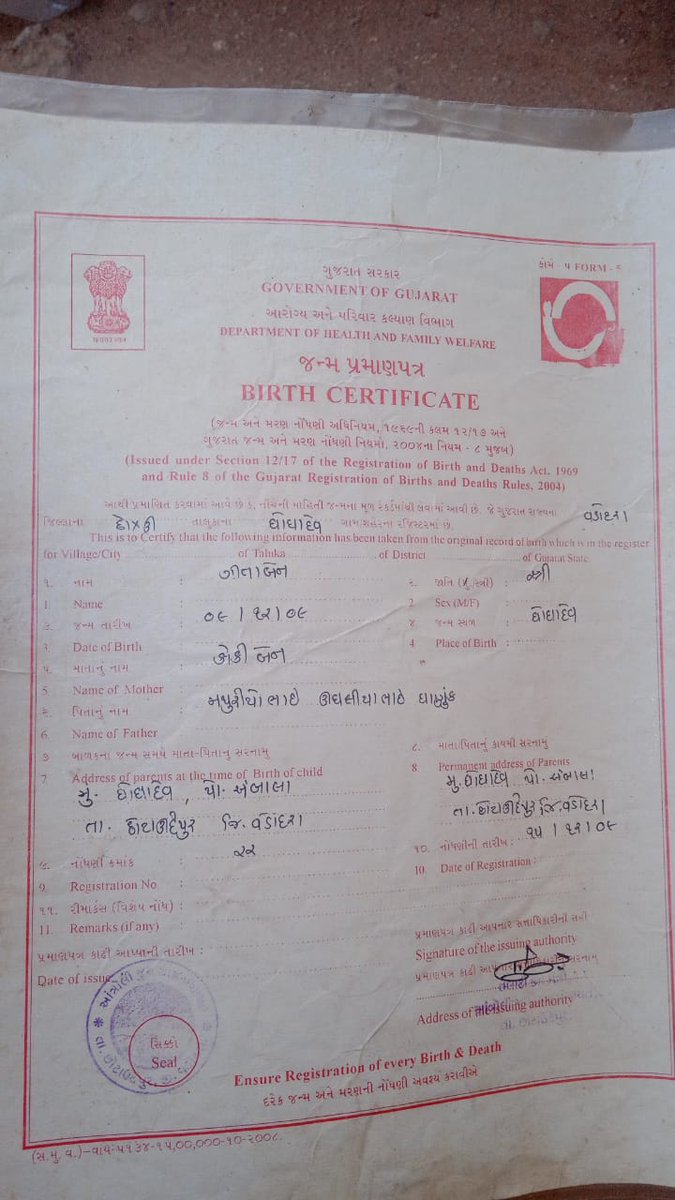 ગુજરાત સરકાર
ફોર્મ ૫ FORM - ૬
GOVERNMENT OF GUJARAT
આરોગ્ય અને પરિવાર કલ્યાણ વિભાગ
DEPARTMENT OF HEALTH AND FAMILY WELFARE
જન્મ પ્રમાણપત્ર
BIRTH CERTIFICATE
(જન્મ અને મરણ નોંધણી અધિનિયમ, ૧૯૬૯ની કલમ ૧૨/૧૭ અને
ગુજરાત જન્મ અને મરણ નોંધણી નિયમો, ૨૦૦૪ના નિયમ - ૮ મુજબ)
(Issued under Section 12/17 of the Registration of Birth and Deaths Act, 1969
and Rule 8 of the Gujarat Registration of Births and Deaths Rules, 2004)
આથી પ્રમાણિત કરવામાં આવે છે કે, નીચેની માહિતી જન્મના મૂળ રેકર્ડમાંથી લેવામાં આવી છે. જે ગુજરાત રાજ્યના વડોદરા
જિલ્લાના તાલુકાના ગામ/શહેરના રજિસ્ટરમાં છે.
This is to Certify that the following information has been taken from the original record of birth which is in the register
for Village/City of Taluka of District of Gujarat State.
૧. નામ : ગીતાબેન ૨. જાતિ (પુ./સ્ત્રી) : સ્ત્રી
1. Name 2. Sex (M/F) :
૩. જન્મ તારીખ : ૦૯ / ૧૨ / ૦૯ ૪. જન્મ સ્થળ :
3. Date of Birth 4. Place of Birth :
૫. માતાનું નામ : બેન
5. Name of Mother
૬. પિતાનું નામ :
6. Name of Father
૭. બાળકના જન્મ સમયે માતા-પિતાનુ સરનામુ ૮. માતા/પિતાનું કાયમી સરનામુ
7. Address of parents at the time of Birth of child 8. Permanent address of Parents
મુ. પો. અંબાલા મુ. પો. અંબાલા
તા. છોટાઉદેપુર જિ. વડોદરા તા. છોટાઉદેપુર જિ. વડોદરા
૯. નોંધણી ક્રમાંક : ૨૨ ૧૦. નોંધણીની તારીખ : ૧૫ / ૧૨ / ૦૯
9. Registration No : 10. Date of Registration :
૧૧. રીમાર્કસ (વિશેષ નોંધ) :
11. Remarks (if any) :
પ્રમાણપત્ર કાઢી આપનાર સત્તાધિકારીની સહી
પ્રમાણપત્ર કાઢી આપ્યાની તારીખ :
Signature of the issuing authority
Date of issue
પ્રમાણપત્ર કાઢી આપનાર સરનામુ
Address of the issuing authority
સિક્કો
Seal
Ensure Registration of every Birth & Death
દરેક જન્મ અને મરણની નોંધણી અવશ્ય કરાવીએ
(સ.મુ.વ.)-વાય-૫૧૩૪-૧૫,૦૦,૦૦૦-૧૦-૨૦૦૮.